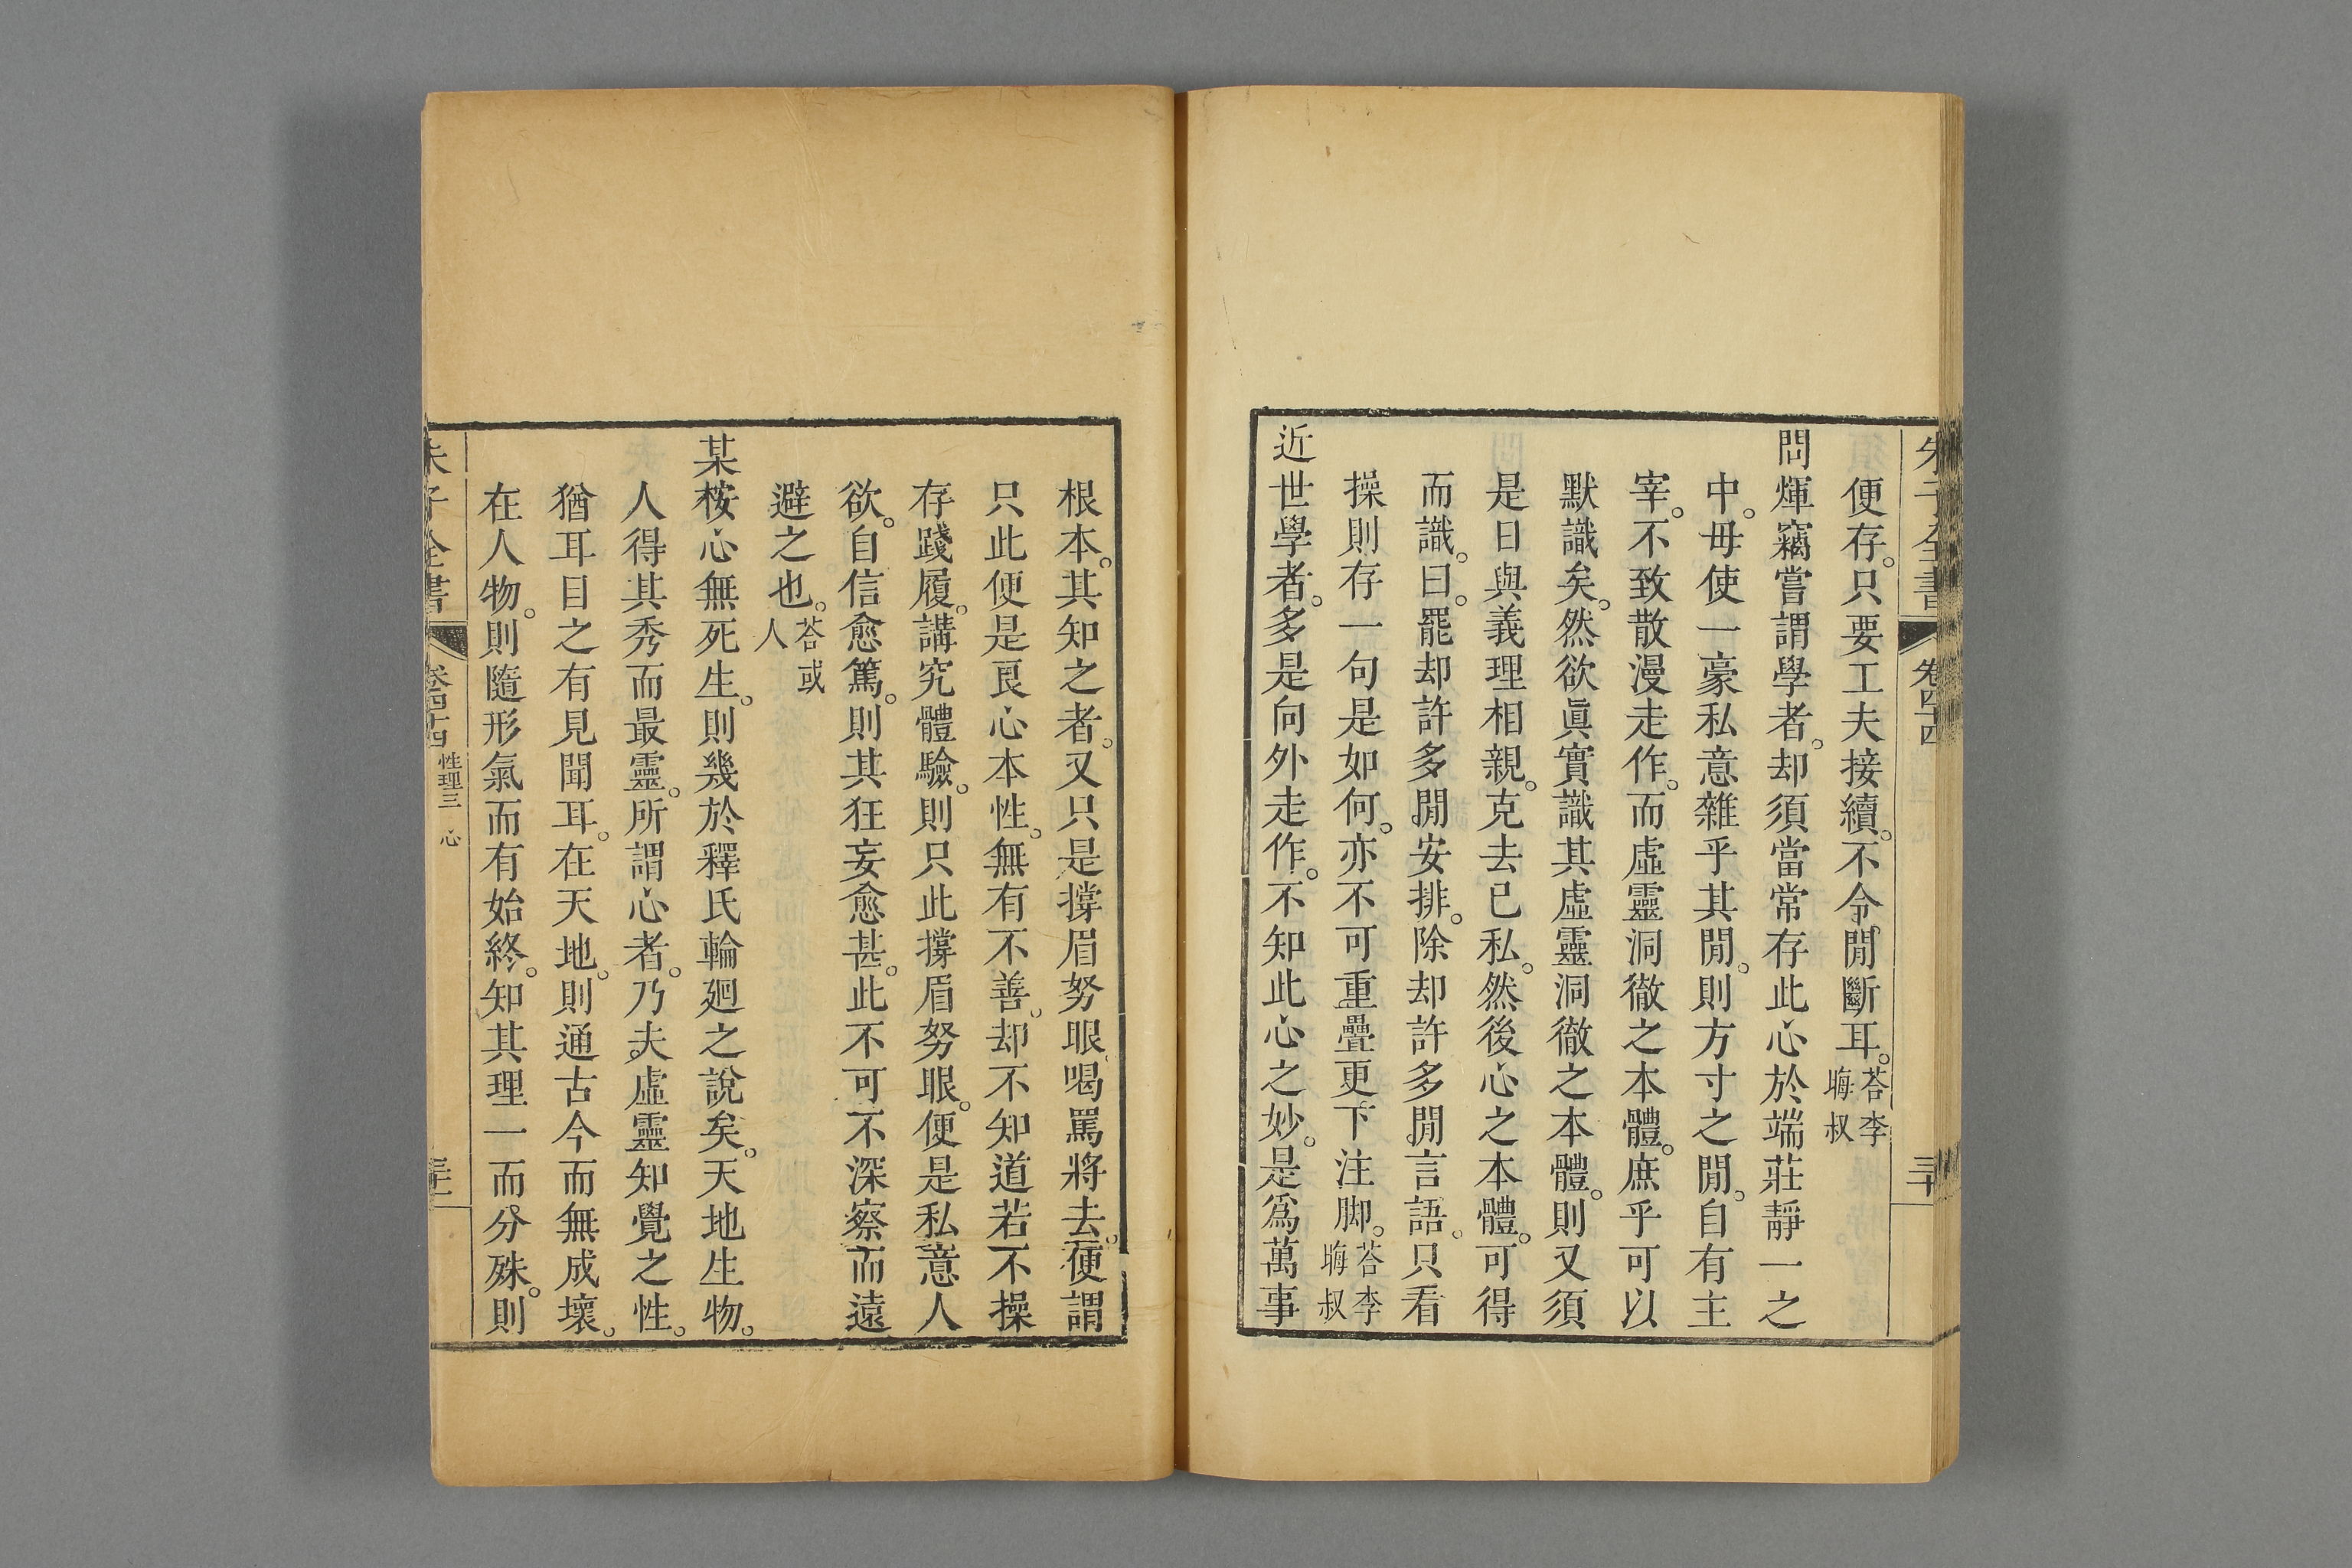 朱子全書 卷四十四 三十
便存。只要工夫接續。不令閒斷耳。答李晦叔
問煇竊嘗謂學者。却須當常存此心於端莊靜一之
中。毋使一豪私意雜乎其閒。則方寸之閒。自有主
宰。不致散漫走作。而虛靈洞徹之本體。庶乎可以
默識矣。然欲眞實識其虛靈洞徹之本體。則又須
是日與義理相親。克去已私。然後心之本體。可得
而識。曰。罷却許多閒安排。除却許多閒言語。只看
操則存一句是如何。亦不可重疊更下注脚。答李晦叔
近世學者。多是向外走作。不知此心之妙。是爲萬事
根本。其知之者。又只是撐眉努眼。喝罵將去。便謂
只此便是良心本性。無有不善。却不知道若不操
存踐履。講究體驗。則只此撐眉努眼。便是私意人
欲。自信愈篤。則其狂妄愈甚。此不可不深察而遠
避之也。答或人
某桉心無死生。則幾於釋氏輪廻之說矣。天地生物。
人得其秀而最靈。所謂心者。乃夫虛靈知覺之性。
猶耳目之有見聞耳。在天地。則通古今而無成壞。
在人物。則隨形氣而有始終。知其理一而分殊。則
朱子全書 卷四十四 性理三 心